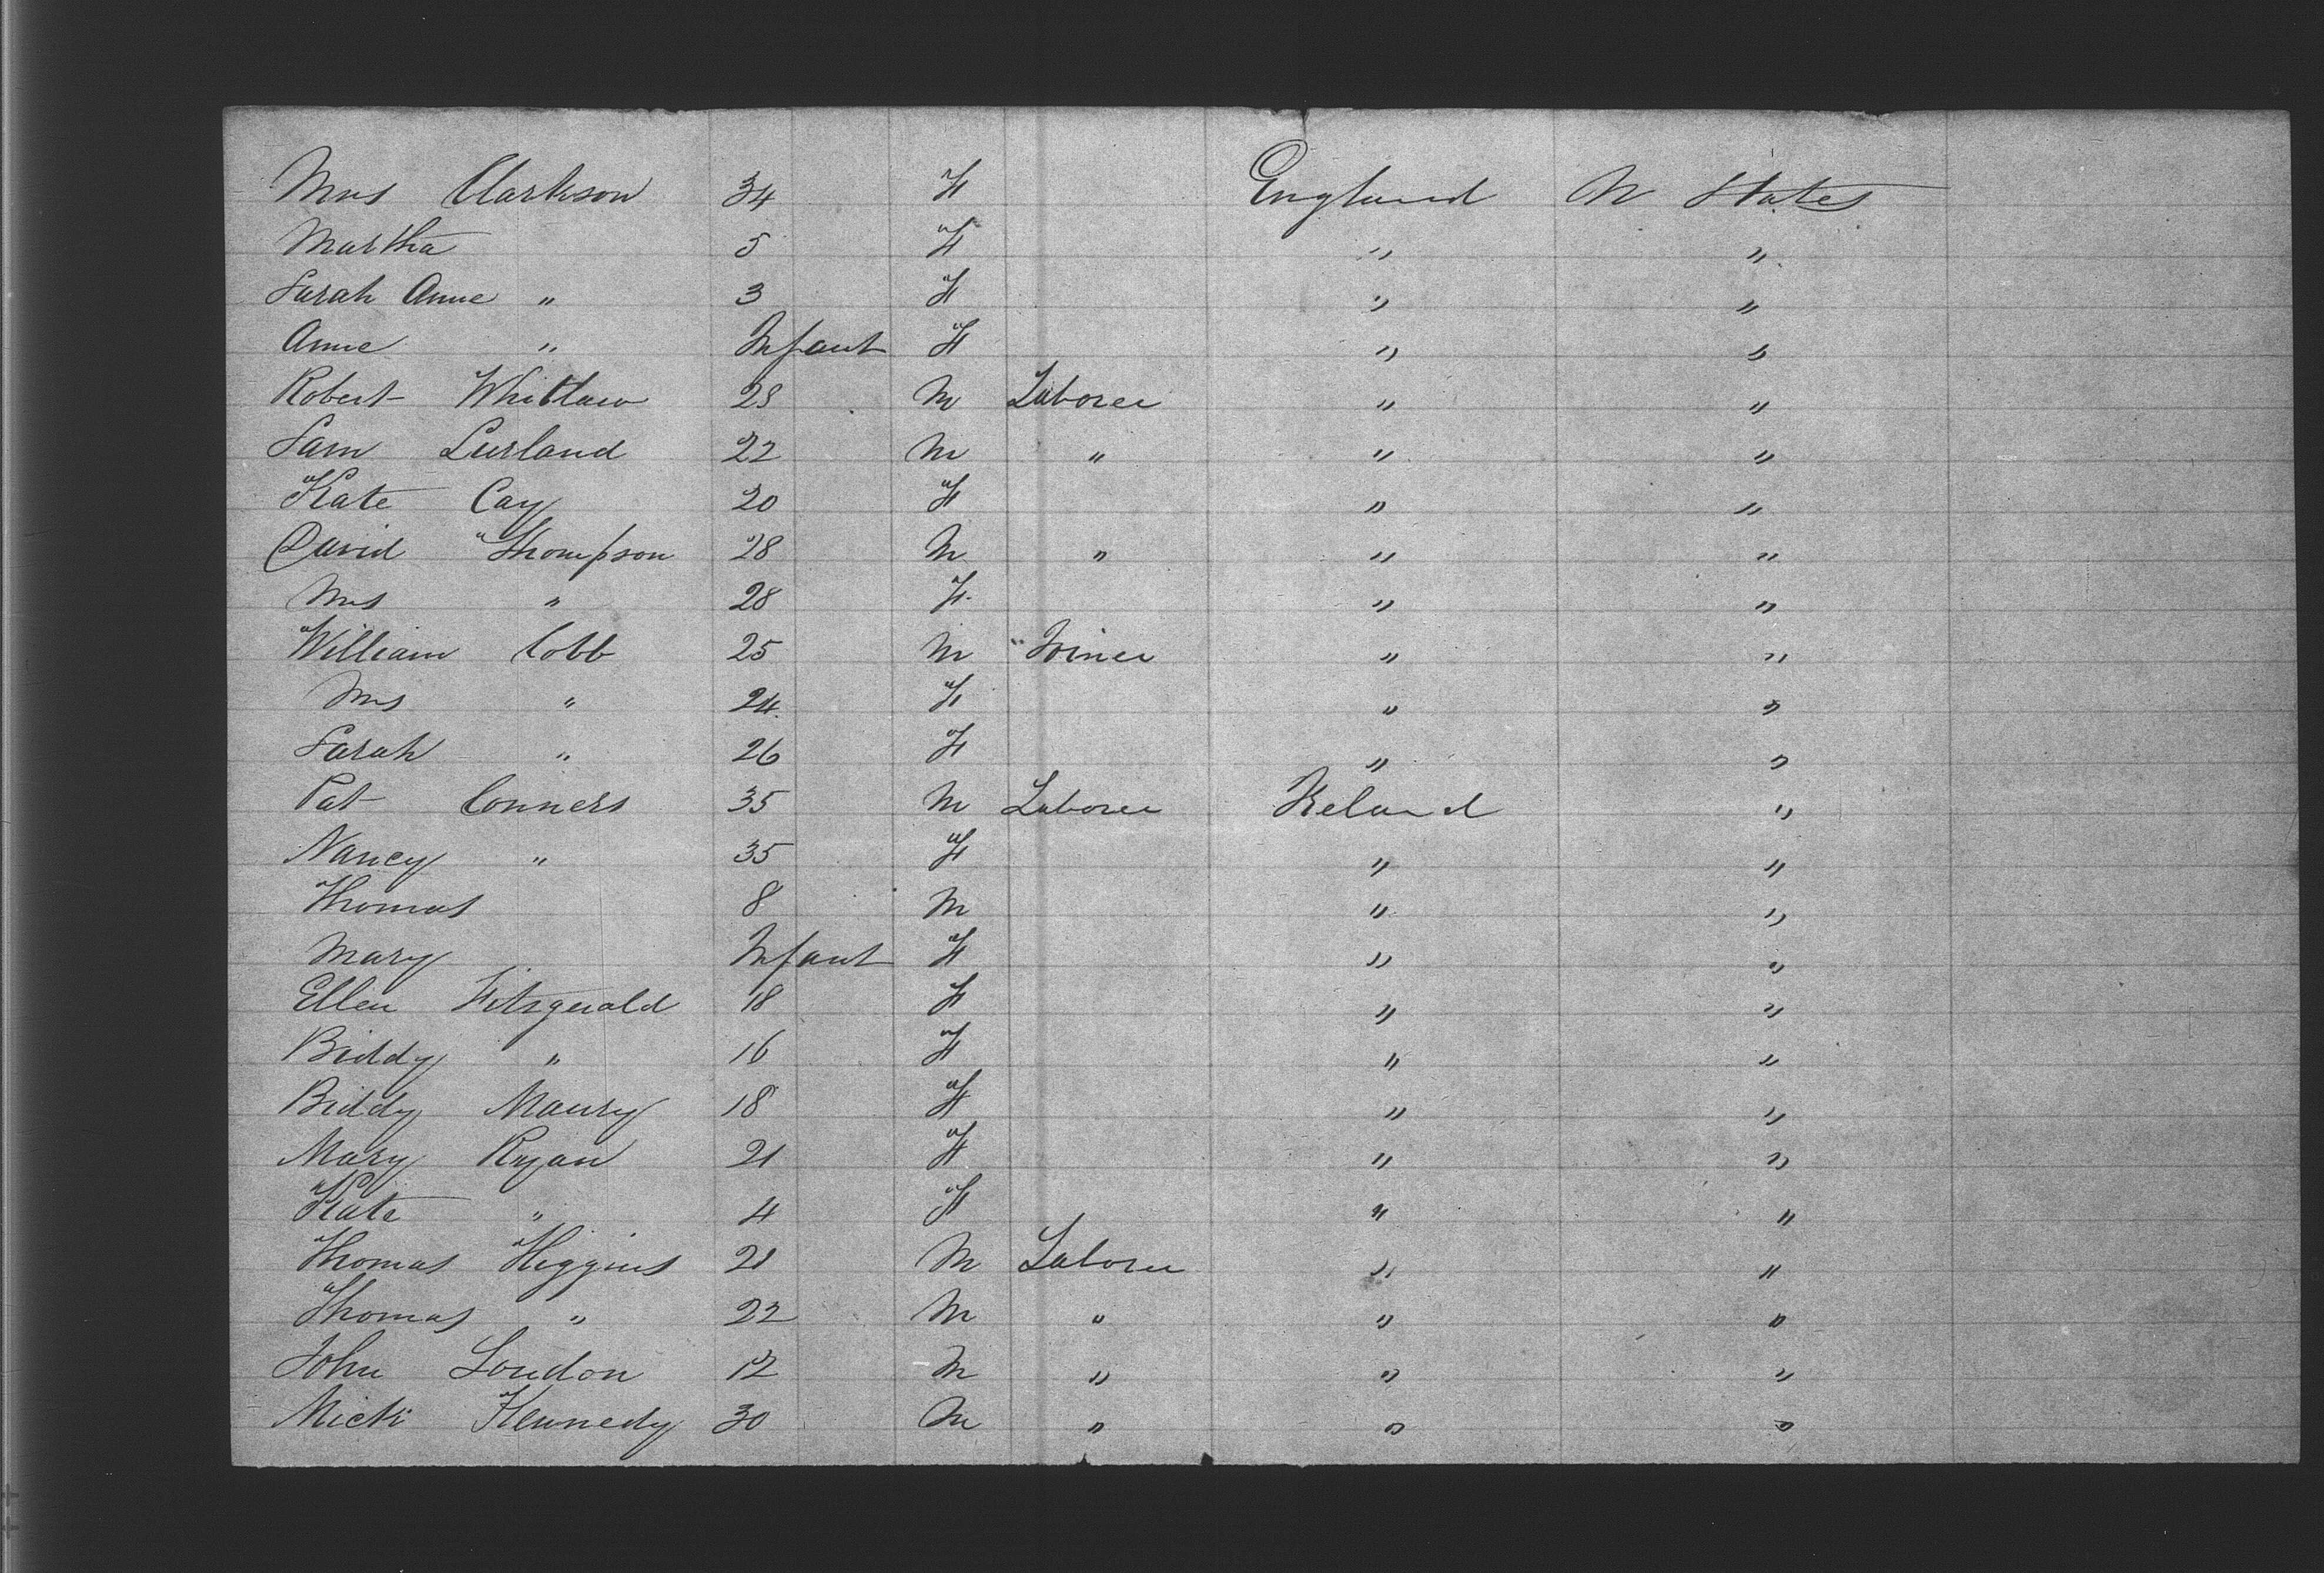 Mrs Clarkson 34 F England U States
Martha 5 F " "
Sarah Anne " 3 F " "
Anne " Infant F " "
Robert Whitlaw 28 M Laborer " "
Sam Lurland 22 M " " "
Kate Cay 20 F " "
David Thompson 28 M " " "
Mrs " 28 F " "
William Cobb 25 M " "
Mrs " 24 F " "
Sarah " 26 F " "
Pat Conners 35 M Laborer Ireland "
Nancy " 35 F " "
Thomas 8 M " "
Mary Infant F " "
Ellen Fitzgerald 18 F " "
Biddy " 16 F " "
Biddy 18 F " "
Mary Ryan 21 F " "
Kate " 4 F " "
Thomas Higgins 21 M Laborer " "
Thomas " 22 M " " "
John London 12 M " " "
Mick Kennedy 30 M " " "